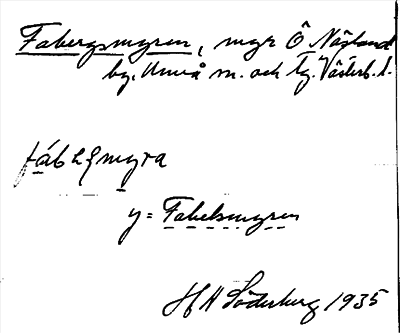 Fabergsmyren, myr Ö Näsland
by, Umeå sn. och tg. Västerb. l.
fábɛʂmyra
y = Fabelsmyren
H H Söderberg 1935